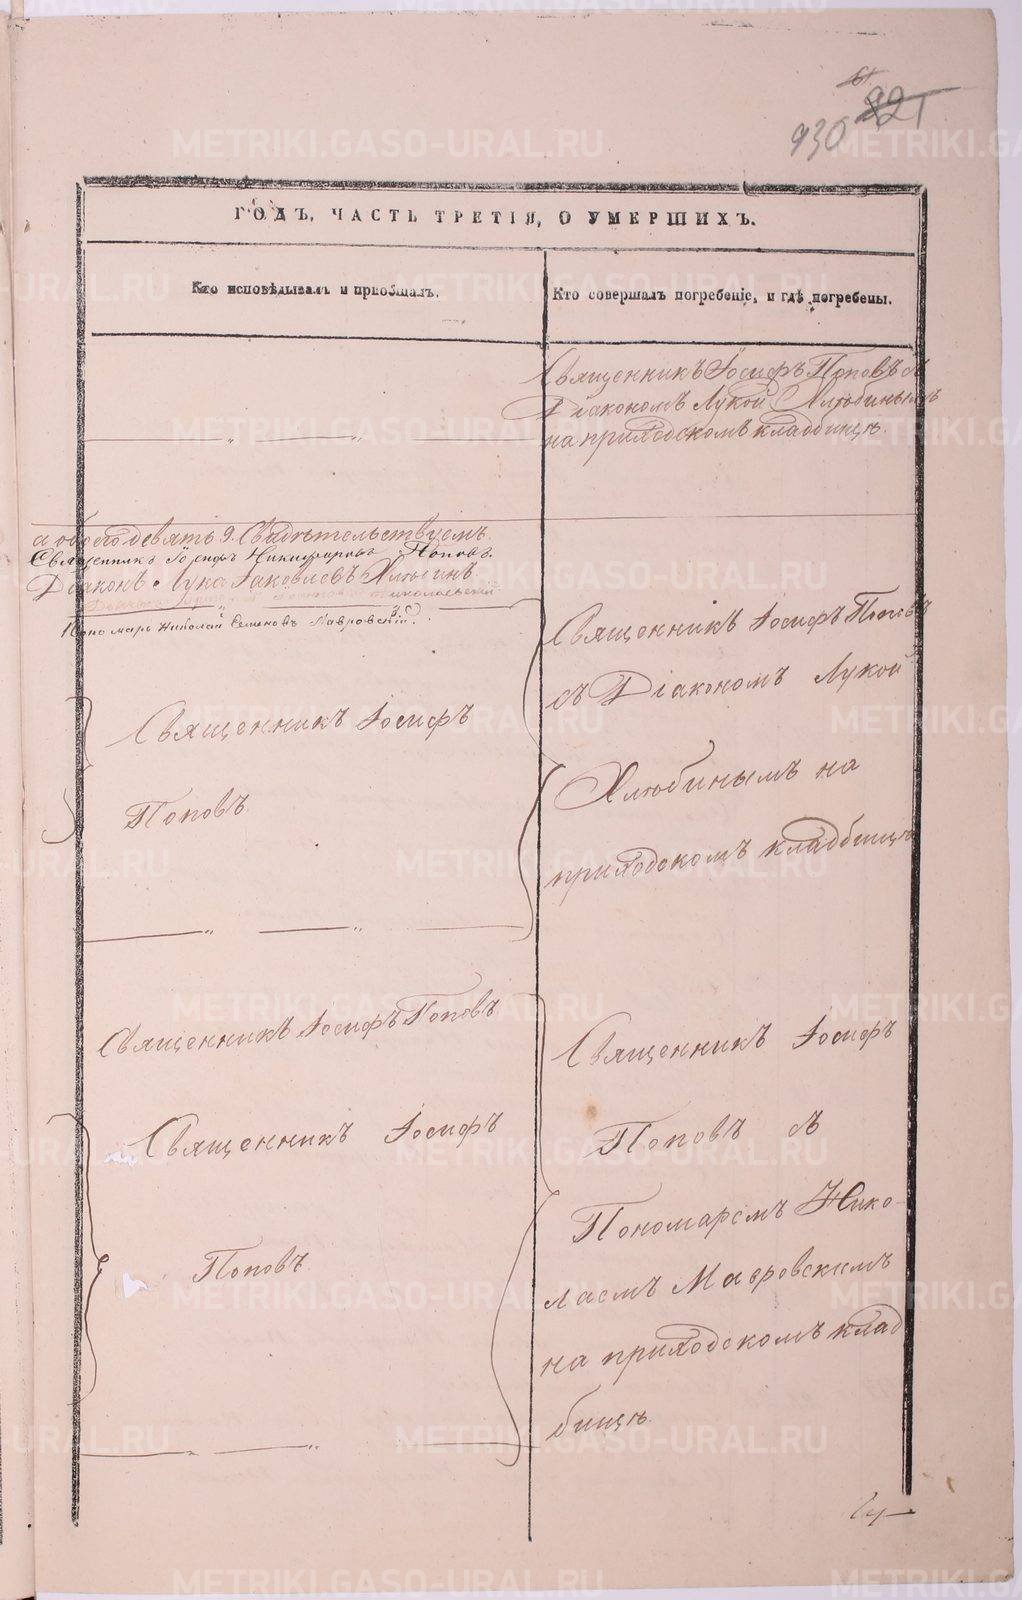 930
ГОДЪ, ЧАСТЬ ТРЕТІЯ, О УМЕРШИХЪ.
Кто исповѣдывалъ и пріобщалъ.
Кто совершалъ погребеніе, и гдѣ погребены.
Священникъ Іосифъ Поповъ съ
Діакономъ Лукой Хлюбинымъ
на приходскомъ кладбищѣ.
а обоего девять 9. Свидѣтельствуемъ
Священникъ Іосифъ Никифоровъ Поповъ.
Діаконъ Лука Іаковлевъ Хлюбинъ
Пономарь Николай Семеновъ
Священникъ Іосифъ Поповъ
съ Діакономъ Лукой
Хлюбинымъ на
приходскомъ кладбищѣ
Священникъ Іосифъ
Поповъ.
Священникъ Іосифъ Поповъ
Священникъ Іосифъ
Поповъ
Священникъ Іосифъ
Поповъ съ
Пономаремъ Нико-
лаемъ Мавровскимъ
на приходскомъ клад
бищѣ.
METRIKI.GASO-URAL.RU